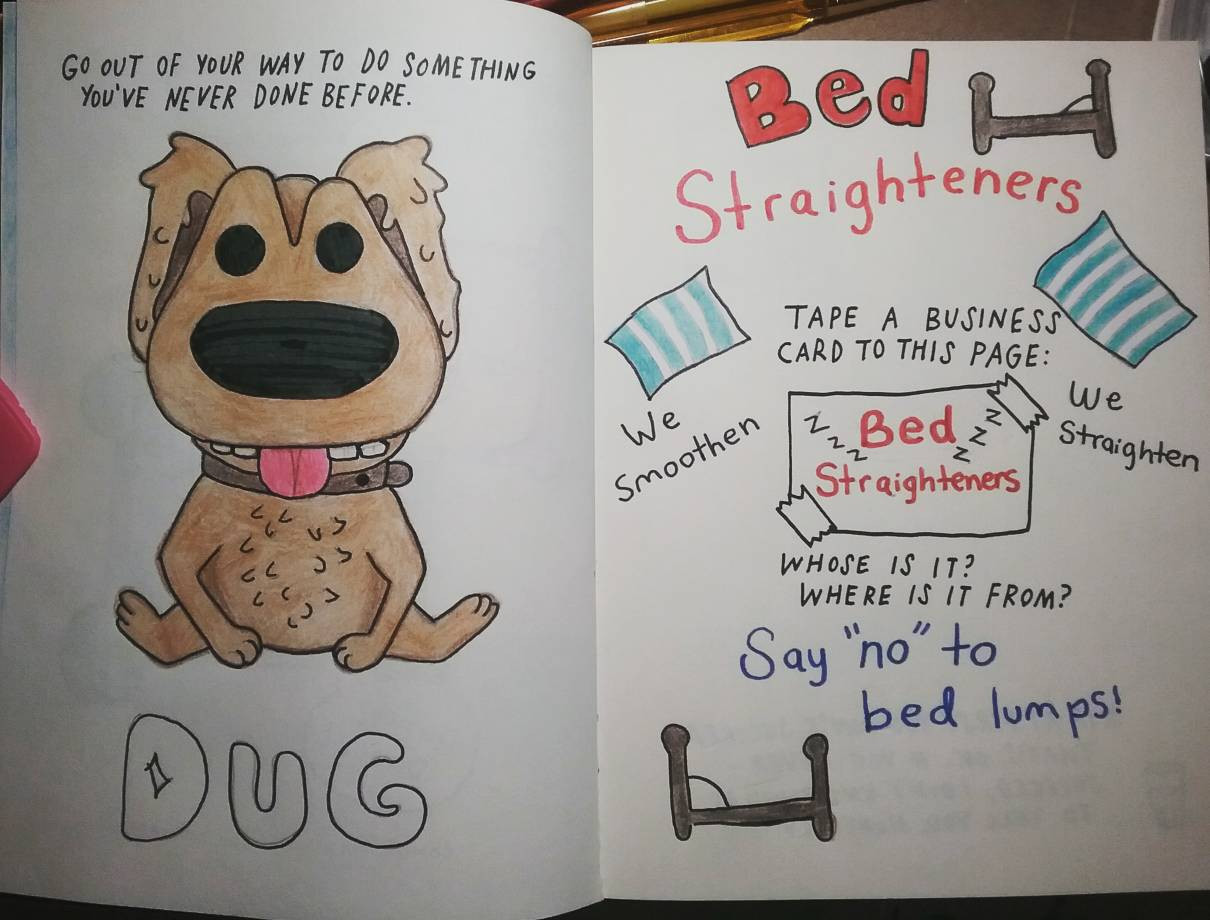 GO OUT OF YOUR WAY TO DO SOMETHING
YOU'VE NEVER DONE BEFORE.
DUG
Bed
Straighteners
TAPE A BUSINESS
CARD TO THIS PAGE:
We
Smoothen
We
Straighten
z z z Bed z z z
Straighteners
WHOSE IS IT?
WHERE IS IT FROM?
Say "no" to
bed lumps!